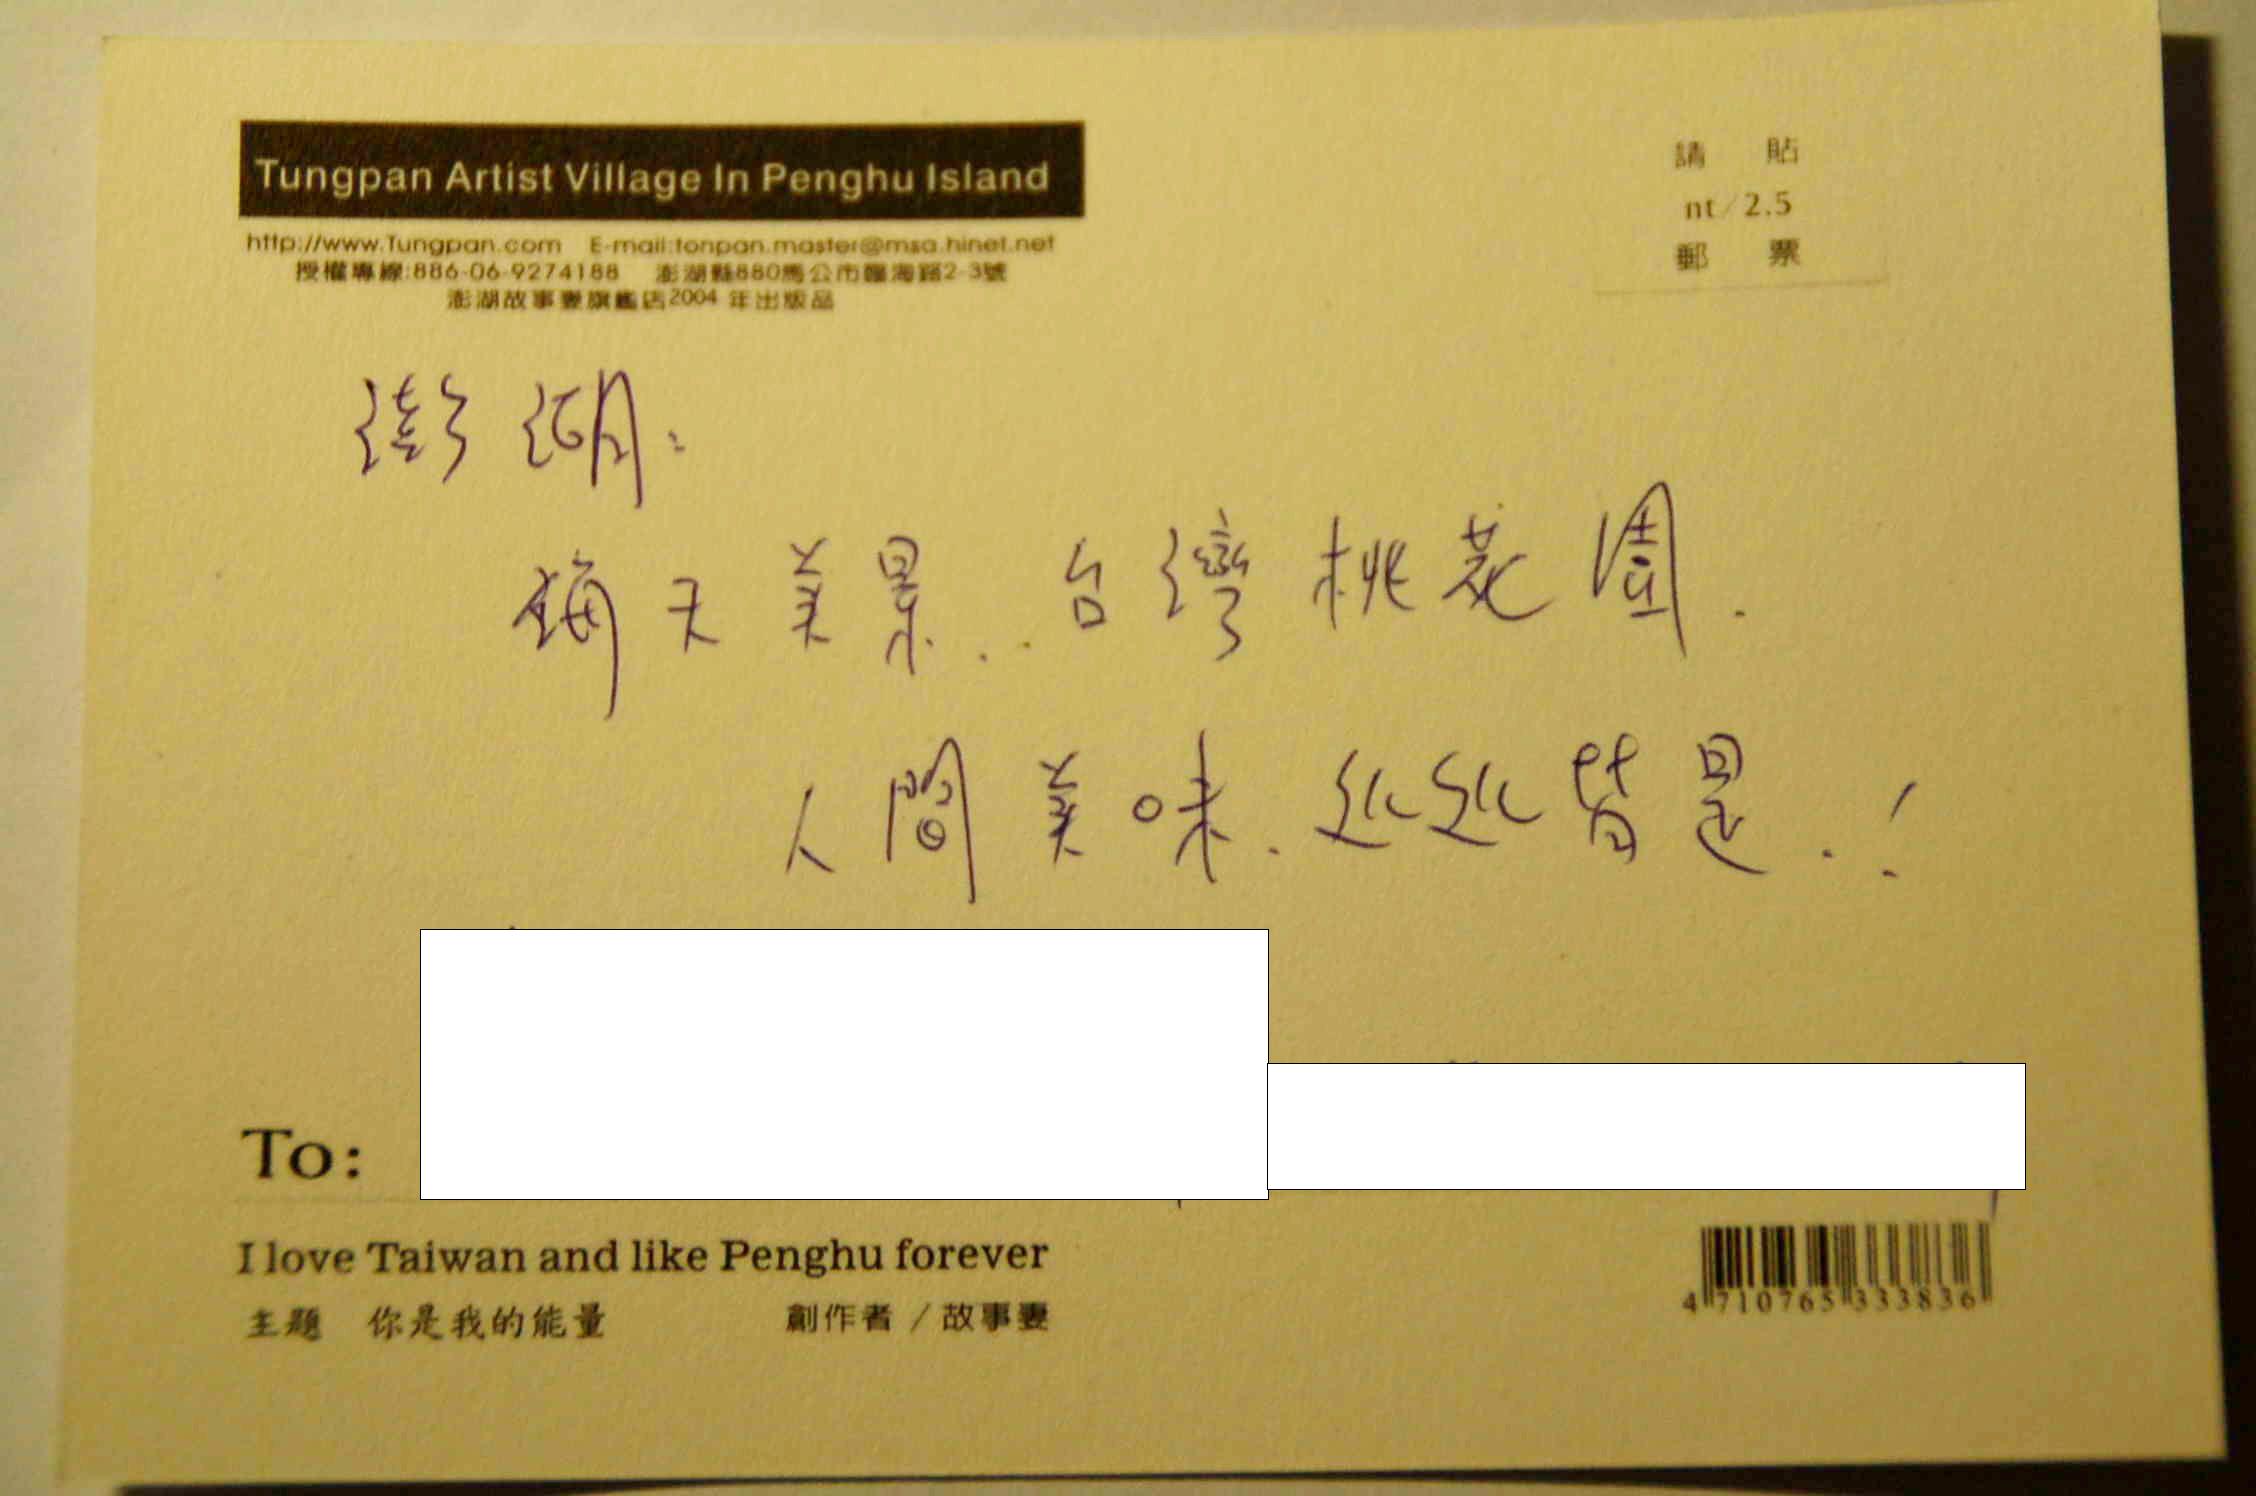 Tungpan Artist Village In Penghu Island
http://www.Tungpan.com E-mail:tonpan.master@msa.hinet.net
授權專線:886-06-9274188 澎湖縣880馬公市臨海路2-3號
澎湖故事妻旗艦店2004 年出版品
請 貼
nt/2.5
郵 票
澎湖:
天美景..台灣桃花園.
人間美味.比比皆是.!
To:
I love Taiwan and like Penghu forever
主題 你是我的能量 創作者/故事妻
4710765333836